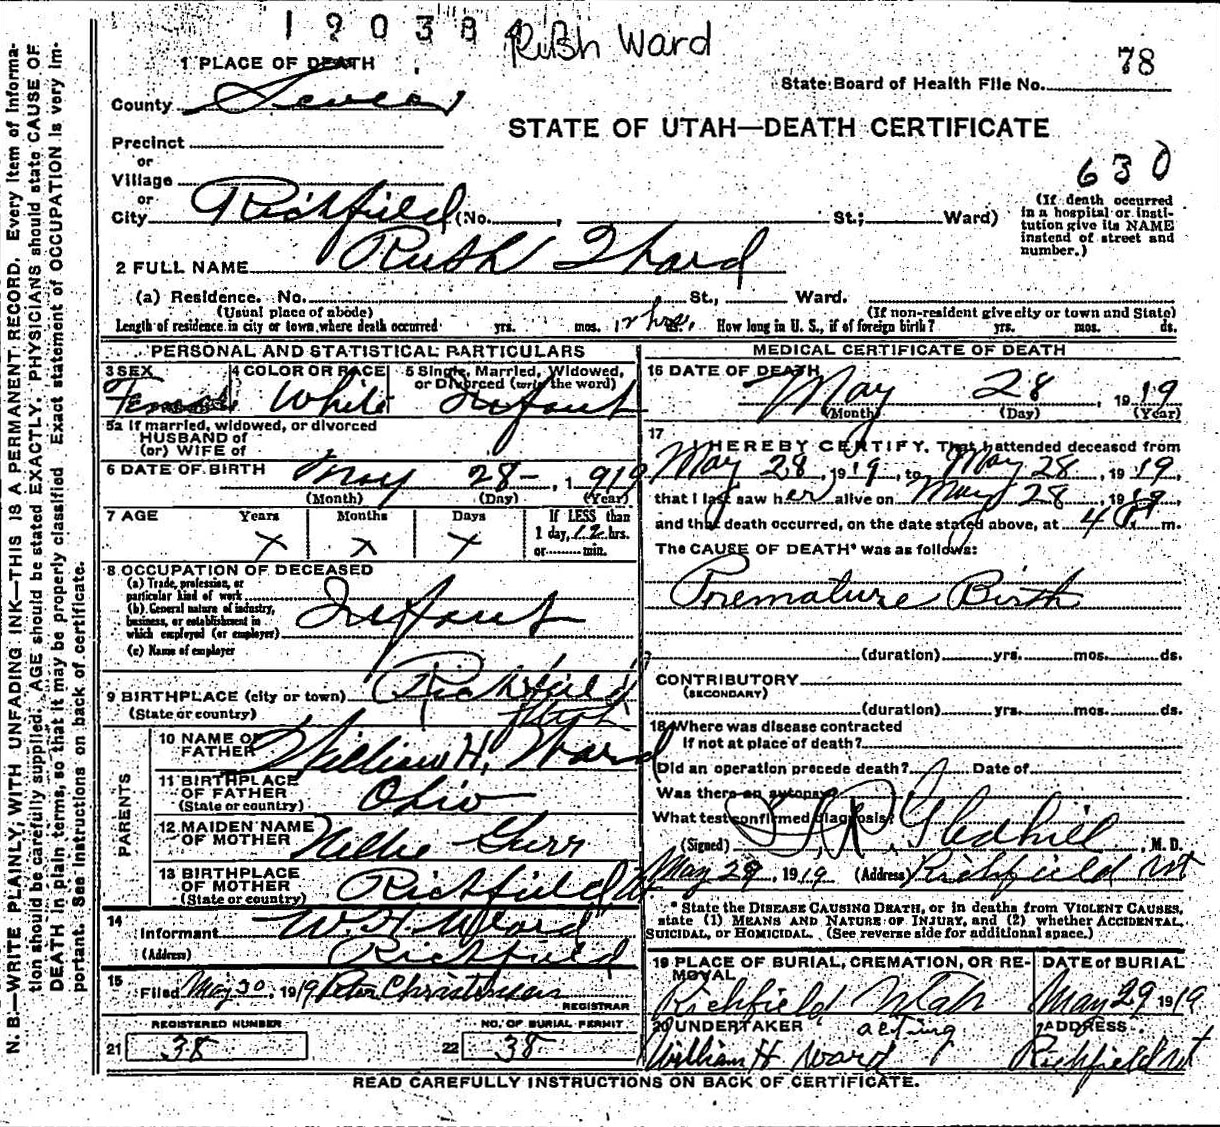 190384
Ruth Ward
78
1 PLACE OF DEATH
State Board of Health File No.
County Sevier
STATE OF UTAH—DEATH CERTIFICATE
Precinct
or
Village
630
or
City Richfield (No. , St.; Ward)
(If death occurred in a hospital or institution give its NAME instead of street and number.)
2 FULL NAME Ruth Ward
(a) Residence. No. St., Ward.
(Usual place of abode) (If non-resident give city or town and State)
Length of residence in city or town where death occurred yrs. mos. 12 hrs. ds. How long in U. S., if of foreign birth? yrs. mos. ds.
PERSONAL AND STATISTICAL PARTICULARS
3 SEX Female
4 COLOR OR RACE White
5 Single, Married, Widowed, or Divorced (write the word) Infant
5a If married, widowed, or divorced
HUSBAND of
(or) WIFE of
6 DATE OF BIRTH May 28 - , 1919
(Month) (Day) (Year)
7 AGE Years Months Days If LESS than
X X X 1 day, 12 hrs.
or min.
8 OCCUPATION OF DECEASED
(a) Trade, profession, or particular kind of work
(b) General nature of industry, business, or establishment in which employed (or employer)
Infant
(c) Name of employer
9 BIRTHPLACE (city or town) Richfield
(State or country) Utah
PARENTS
10 NAME OF FATHER William H. Ward
11 BIRTHPLACE OF FATHER (State or country) Ohio
12 MAIDEN NAME OF MOTHER Nellie Gurr
13 BIRTHPLACE OF MOTHER (State or country) Richfield U
14 Informant W. H. Ward
(Address) Richfield
15 Filed May 30, 1919 Peter Christensen
REGISTRAR
REGISTERED NUMBER NO. OF BURIAL PERMIT
21 38 22 38
MEDICAL CERTIFICATE OF DEATH
16 DATE OF DEATH
May 28, 1919
(Month) (Day) (Year)
17 I HEREBY CERTIFY, That I attended deceased from
May 28, 1919, to May 28, 1919,
that I last saw her alive on May 28, 1919,
and that death occurred, on the date stated above, at 4 P. m.
The CAUSE OF DEATH* was as follows:
Premature Birth
(duration) yrs. mos. ds.
CONTRIBUTORY
(SECONDARY)
(duration) yrs. mos. ds.
18 Where was disease contracted
If not at place of death?
Did an operation precede death? Date of
Was there an autopsy?
What test confirmed diagnosis?
(Signed) Gledhill, M. D.
May 29, 1919 (Address) Richfield Ut
* State the DISEASE CAUSING DEATH, or in deaths from VIOLENT CAUSES,
state (1) MEANS AND NATURE OF INJURY, and (2) whether ACCIDENTAL,
SUICIDAL, or HOMICIDAL. (See reverse side for additional space.)
19 PLACE OF BURIAL, CREMATION, OR REMOVAL DATE of BURIAL
Richfield Utah May 29 1919
20 UNDERTAKER acting ADDRESS
William H Ward Richfield Ut
READ CAREFULLY INSTRUCTIONS ON BACK OF CERTIFICATE.
N. B.—WRITE PLAINLY, WITH UNFADING INK—THIS IS A PERMANENT RECORD. Every item of Information should be carefully supplied. AGE should be stated EXACTLY. PHYSICIANS should state CAUSE OF DEATH in plain terms, so that it may be properly classified. Exact statement of OCCUPATION is very important. See instructions on back of certificate.